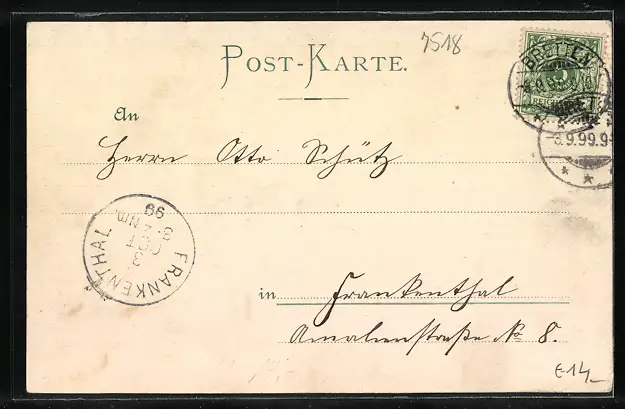 7518
POST-KARTE.
BRETTEN
REICHSPOST
3.9.99.9
An
Herrn Otto Schütz
FRANKENTHAL
3
OCT
99
in Frankenthal
Amalienstraße No 8.
€14,-